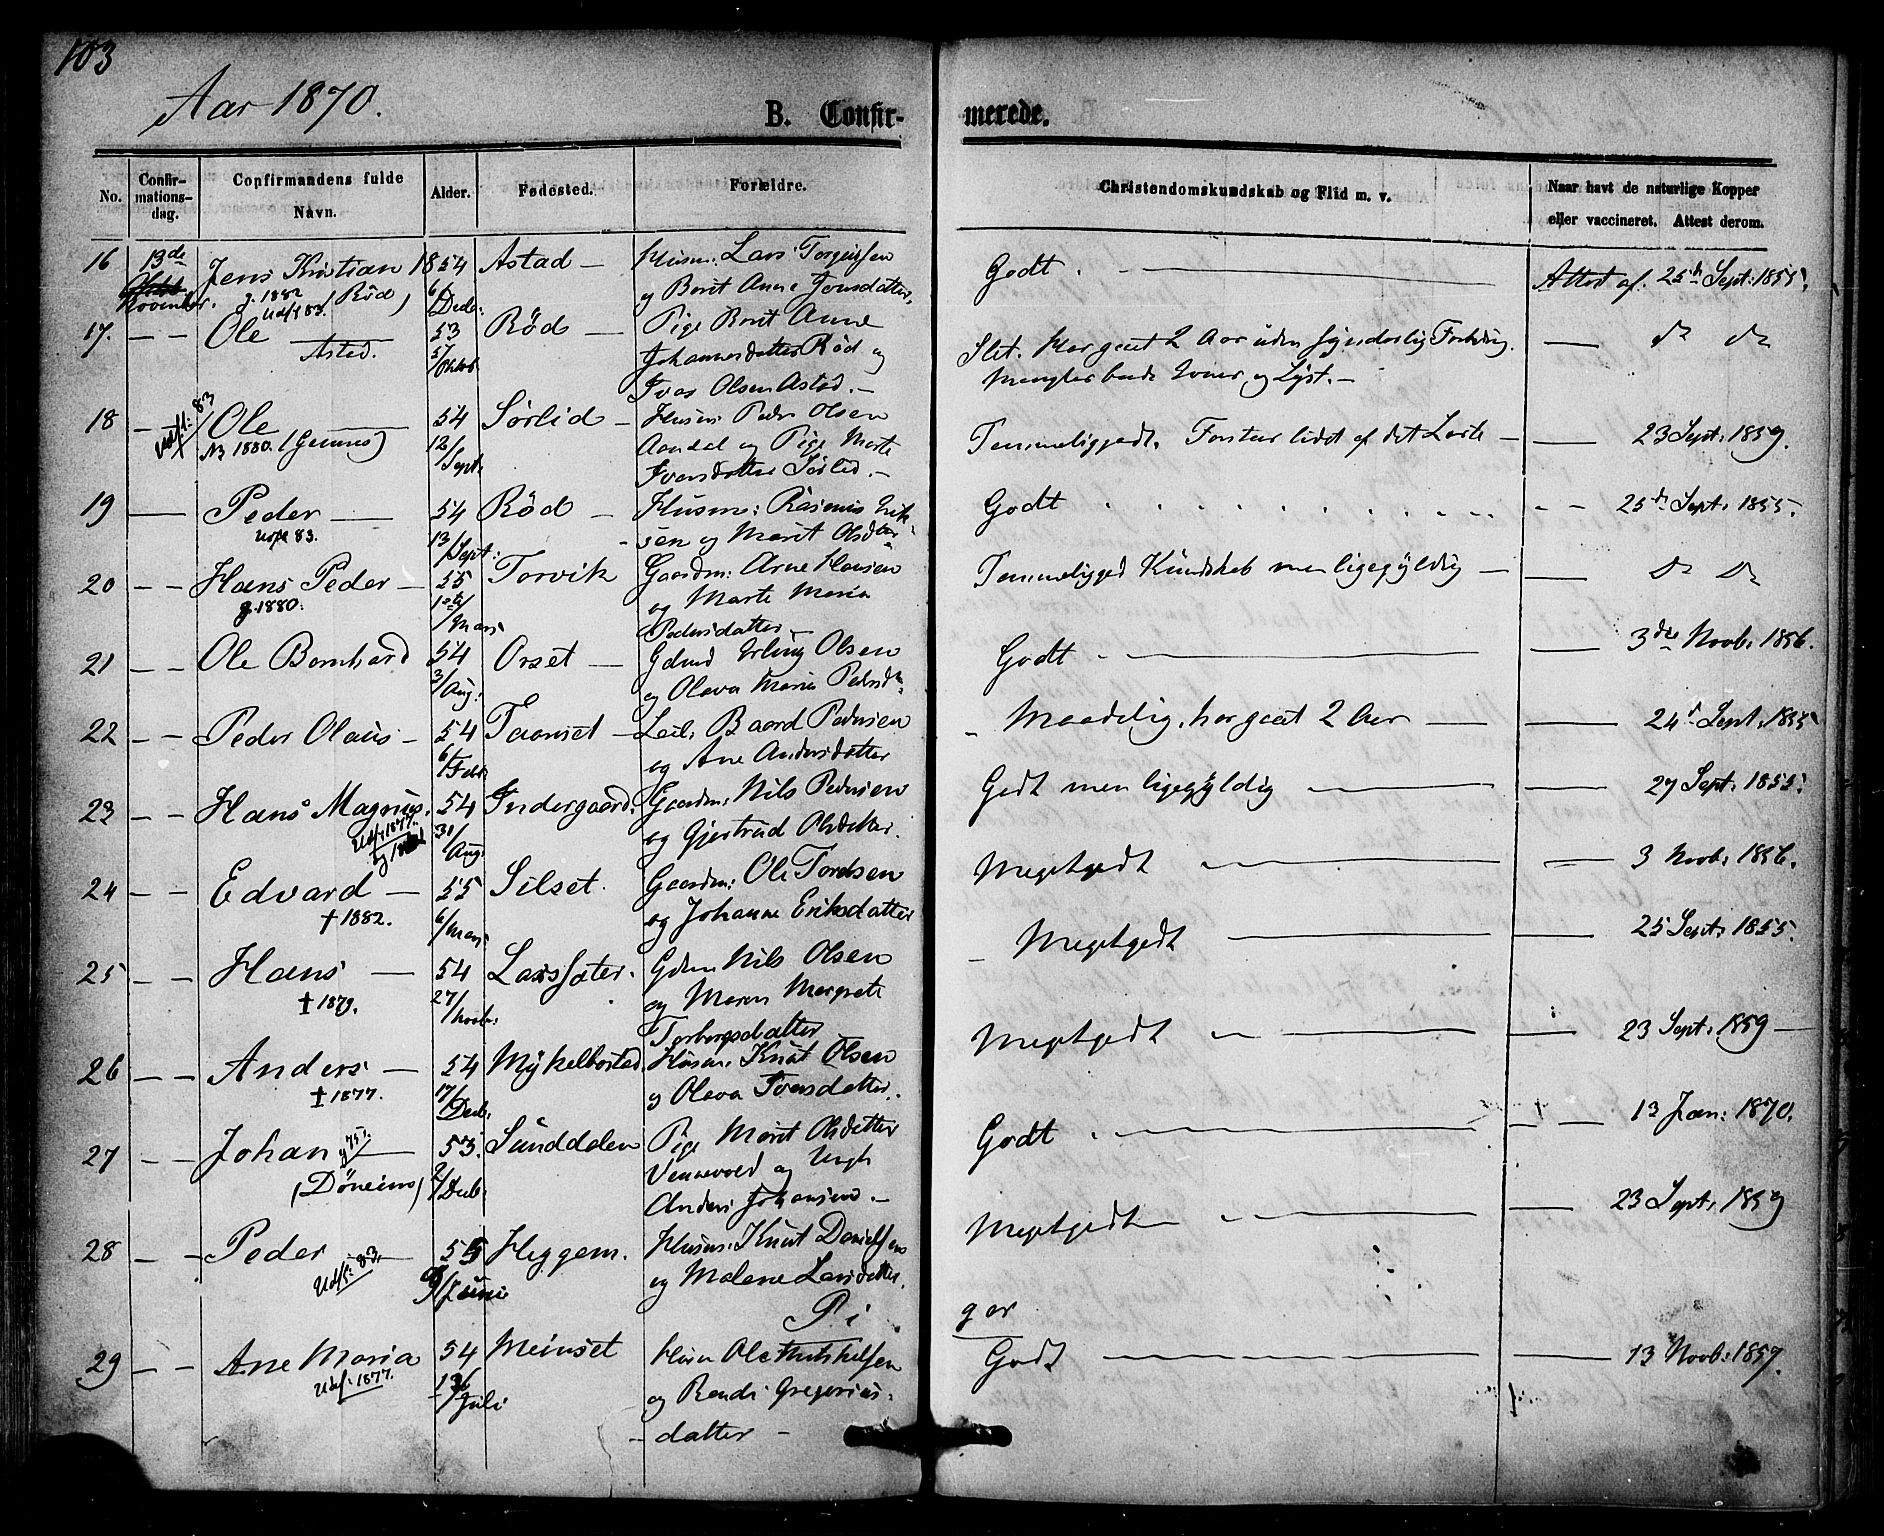 103
Aar 1870.
B. Confir-merede.
No. Confir-mations-dag. Confirmandens fulde Navn. Alder. Fødested. Forældre. Christendomskundskab og Flid m. v. Naar havt de naturlige Kopper eller vaccineret. Attest derom.
16 13de November. Jens Kristian 1854 Astad — Husm: Lars
g. 1882 (Röd) 6/Decbr: og Berit Anne Jonsdatter.
Udfl 83.
Godt. Attest af. 25de Sept: 1855.
17. — — Ole 53 Röd — Pige Berit Anne
Astad. 5/Oktob Johannesdatter Röd og
Ivar Olsen Astad. —
Slet. Har gaaet 2 Aar uden synderlig
Mangler baade Evner og Lyst. — — do do
18 Ole 54 Sörlid — Husm: Peder Olsen
Udfl: 83 1880. (Gemnes) 12/Sept: Aandal og Pige Marte
Iversdatter Sörlid. —
Temmeliggodt. Forstaar lidt af det Lærte — — 23 Sept: 1859.
19 — Peder — 54 Röd — Husm: Rasmus Erik-
Udfl 83. 13/Sept: sen og Marit Olsdtter
Godt - - 25de Sept: 1855.
20 — — Hans Peder — 55 Torvik Gaardm: Arne Hansen
g. 1880. 1ste/Mars og Marte Maria
Pedersdatter —
Temmeliggod Kundskab men ligegyldig — — do do
21 — — Ole Bernhard 54 Orset — Gdmd Erling Olsen
3/Aug: og Olava Maria Pedersdtr
Godt — — 3die Novb: 1856.
22 — — Peder Olaus — 54 Taarset — Leil: Baard Pedersen
6/Febr og Ane Andersdatter
Maadelig, har gaaet 2 Aar — — 24de Sept. 1855
23 — — Hans Magnus. 54 Indergaard. Gaardm: Nils Pedersen
Udfl: 1877. 31/Aug: og Gjertrud Olsdatter.
Godt men ligegyldig — — 27 Sept. 1855.
24 — — Edvard — 55 Silset. Gaardm: Ole Tordsen
† 1882. 6/Mars og Johanne Eriksdatter
Megetgodt — — 3 Novb: 1856.
25 — — Hans — 54 Larssæter. Gdm Nils Olsen
† 1879. 27/Novb: og Maren Margrete
Torborgsdatter
Megetgodt — — 25 Sept: 1855.
26 — — Anders — 54 Mykelbostad. Husm: Knut Olsen
† 1877. 17/Decb: og Olava Iversdatter.
Megetgodt — — 23 Sept: 1859 —
27 — — Johan 53. Sunddalen Pige Marit Olsdatter
(Döneim) 2/Decb: Vennevold og Ungk
Anders Johansen. —
Godt — — 13 Jan: 1870.
28 — — Peder 55 Heggem. Husm: Knut Danielsen
Udfl: 83. 9/Juni og Malene Larsdatter.
Megetgodt — — 23 Sept: 1859
Pi ger
29 — — Ane Maria 54 Meinset Husm Ole
Udfl: 1877. 13/Juli og Randi Gregorius-
— datter —
Godt — — 13 Novb: 1857.